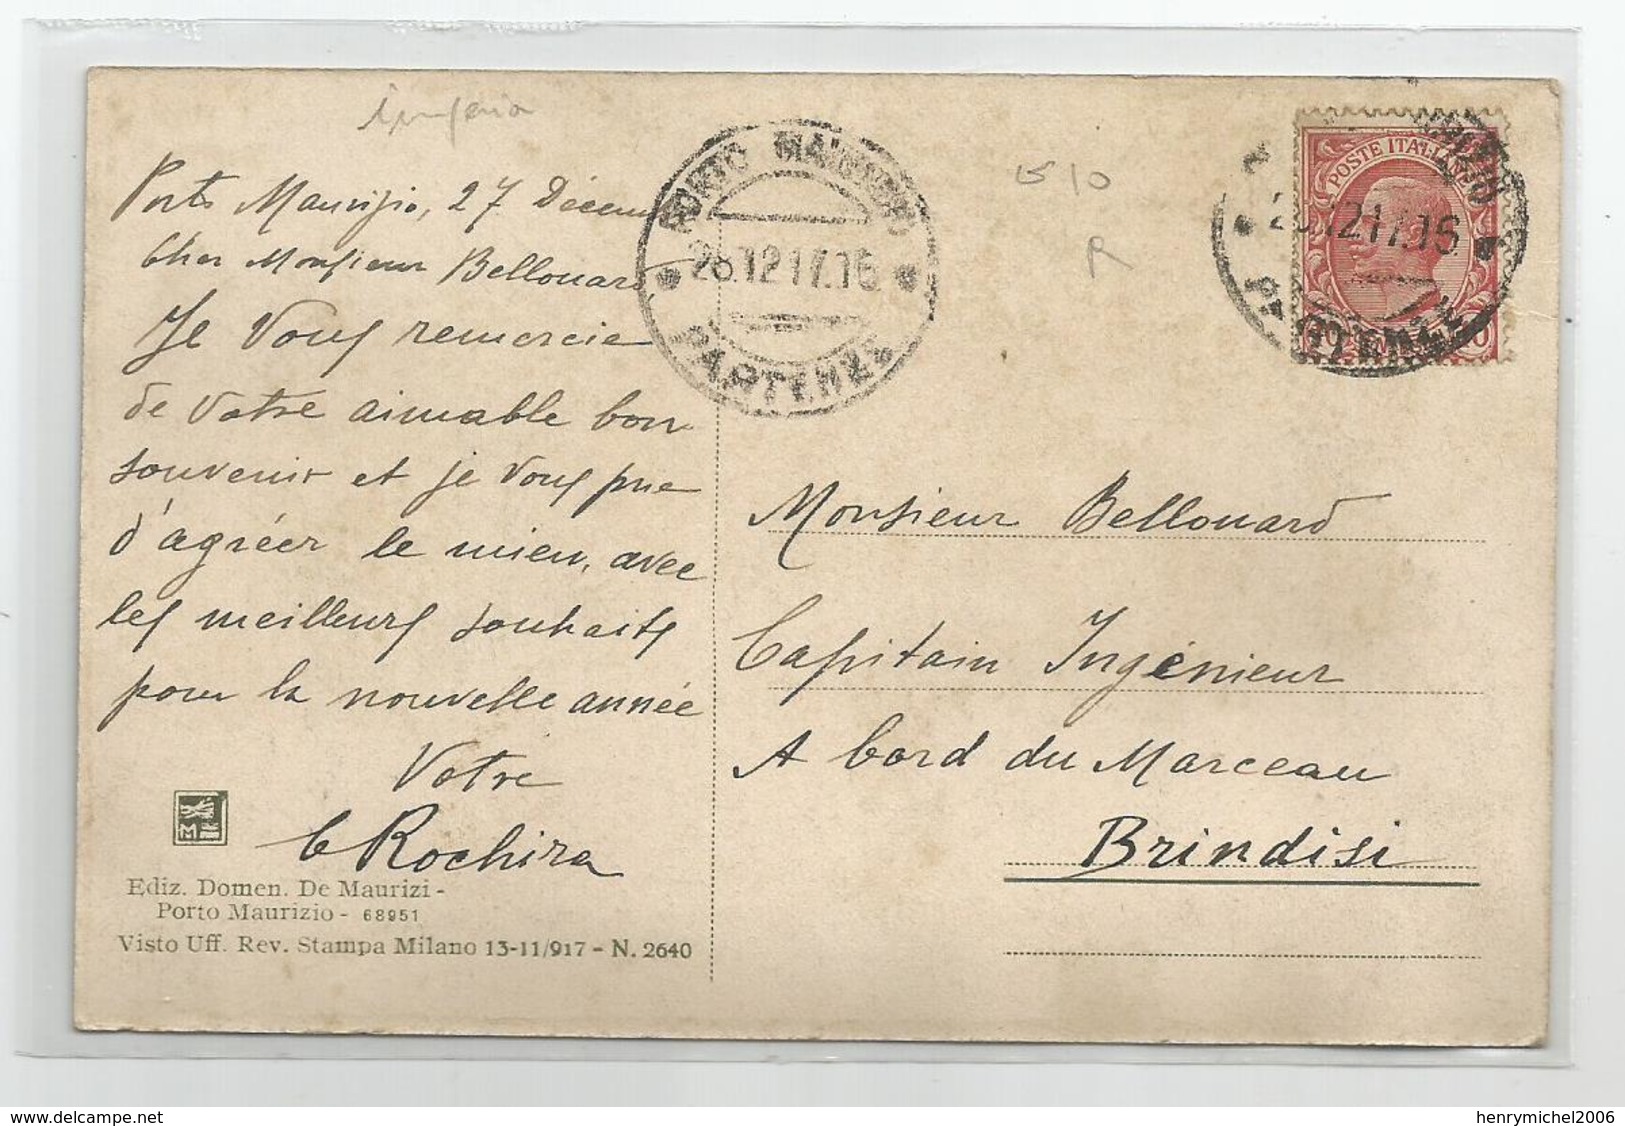 Imperia
Porto Maurizio, 27 Décem
Cher Monsieur Bellouard,
Je Vous remercie
de Votre aimable bon
souvenir et je Vous prie
d'agréer le mien, avec
les meilleurs souhaits
pour la nouvelle année
Votre
Rochira
M
Ediz. Domen. De Maurizi -
Porto Maurizio - 68951
Visto Uff. Rev. Stampa Milano 13-11/917 - N. 2640
PORTO MAURIZIO
28.12.17.16
PARTENZE
10
R
POSTE ITALIANE
12.17.16
Monsieur Bellouard
Capitain Ingénieur
A bord du Marceau
Brindisi
https://www.delcampe.net
henrymichel2006